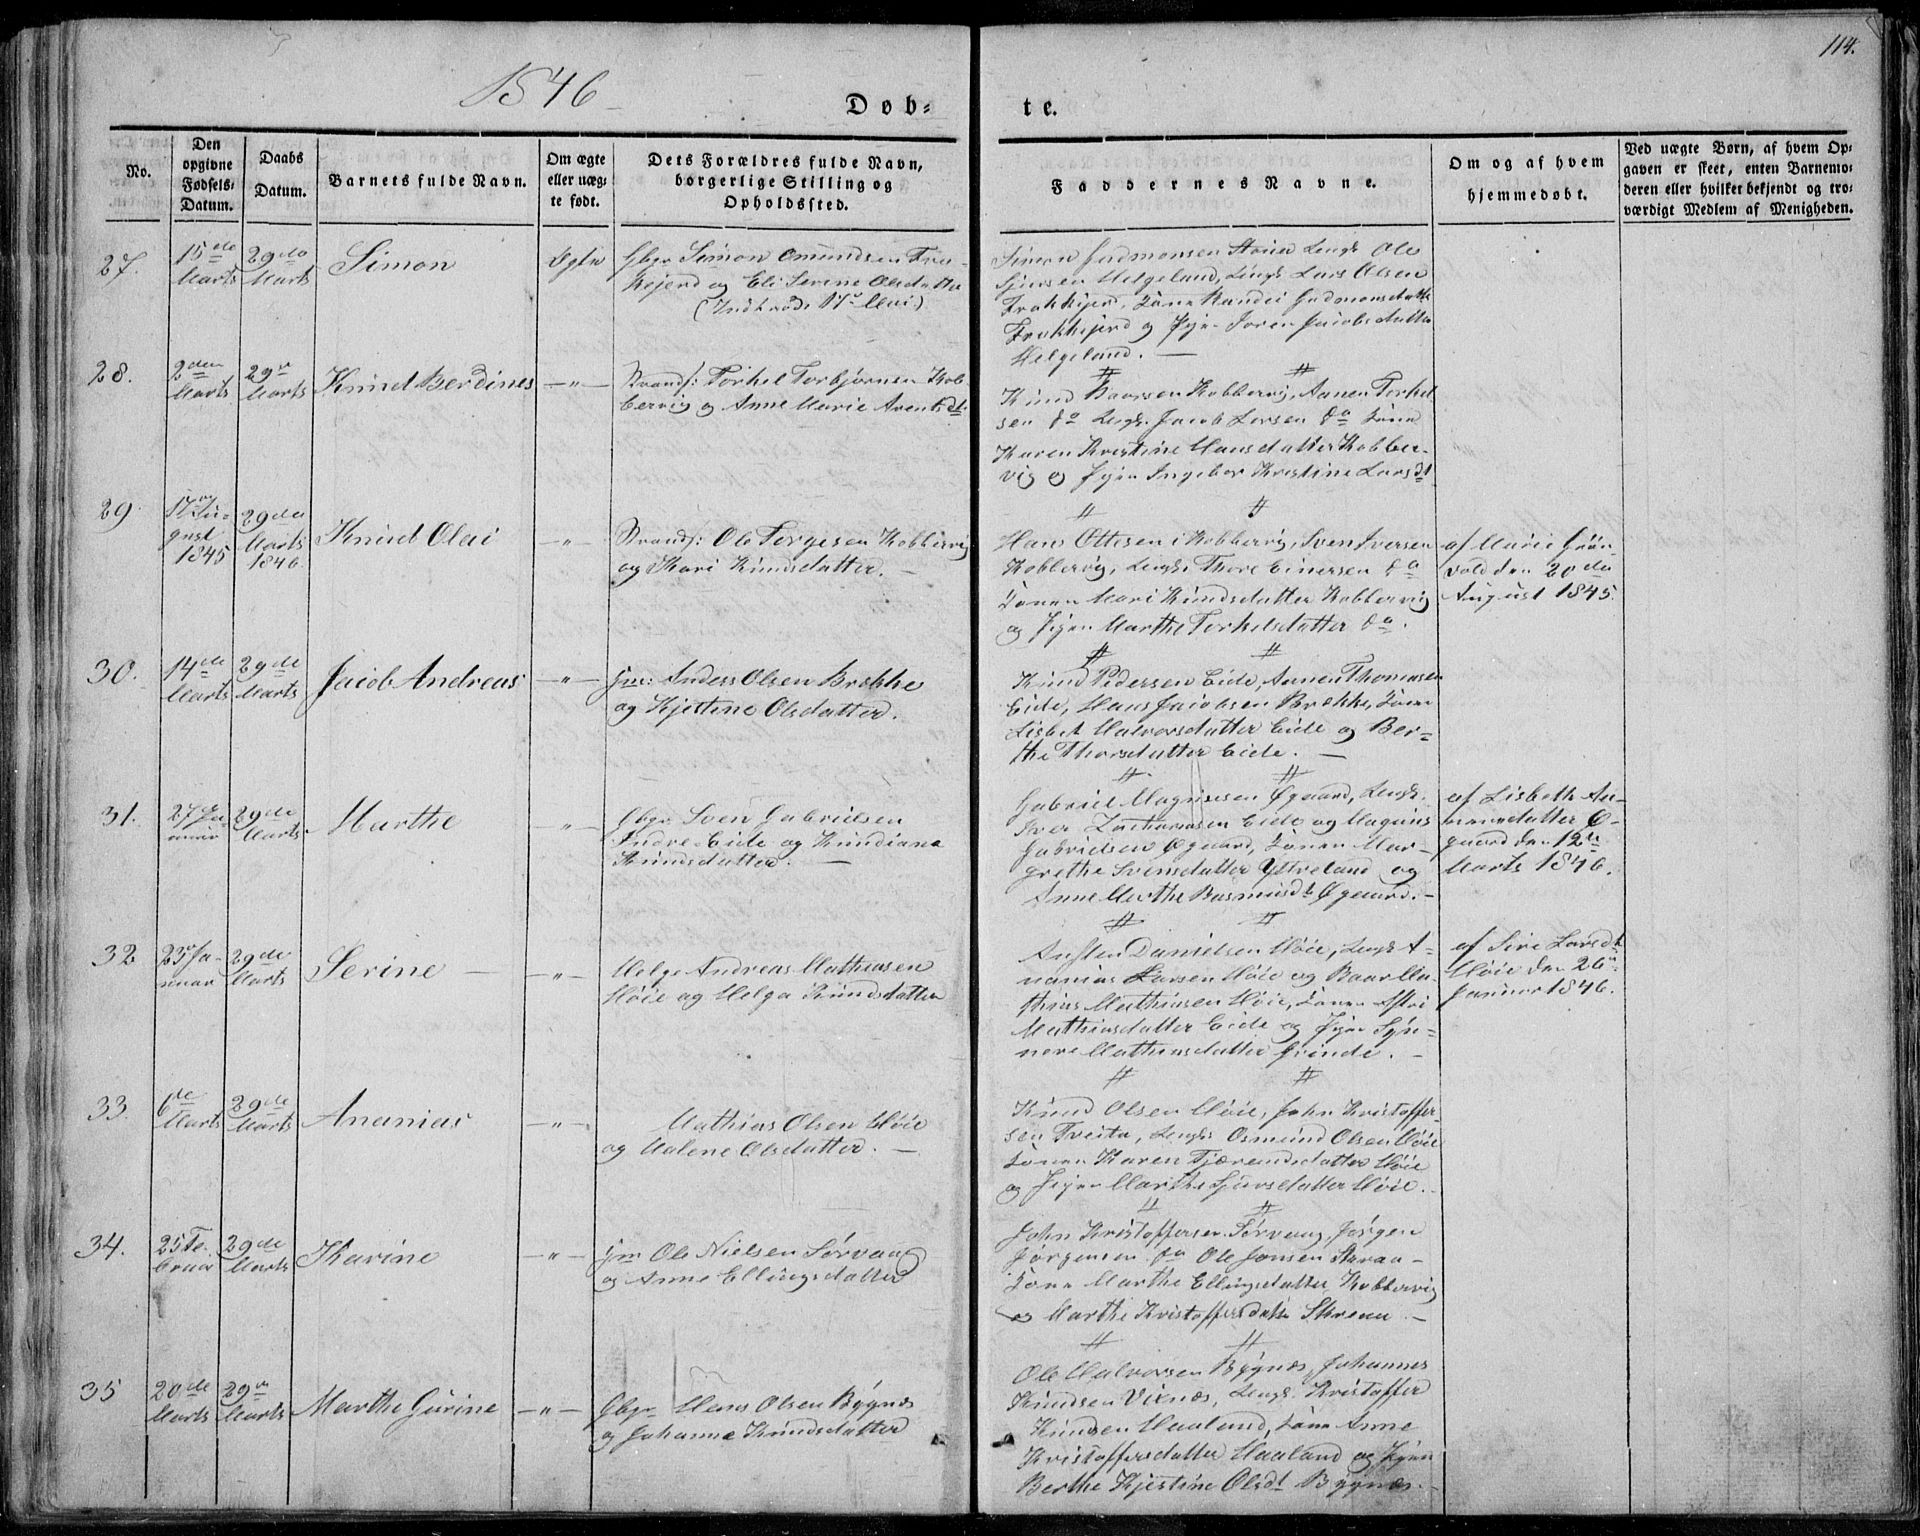 114.
1846
Døb-
te.
No.
Den opgivne Fødsels-Datum.
Daabs Datum.
Barnets fulde Navn.
Om ægte eller uægte født.
Dets Forældres fulde Navn, borgerlige Stilling og Opholdssted.
Faddernes Navne.
Om og af hvem hjemmedøbt.
Ved uægte Børn, af hvem Opgaven er skeet, enten Barnemoderen eller hvilket bekjendt og troværdigt Medlem af Menigheden.
27.
15de Marts
29de Marts
Simon
Ægte
Gbgr Simon Omundsen
og Eli Serine Olsdatter
Simon Gudmonsen Ungk. Ole
Sjursen Helgeland, Ungk. Lars Olsen
Helgeland. —
28.
2den Marts
29de Marts
Knud Berdines
—"—
Strands: Torkel Torbjørnsen Kob-
bervig og Anne Marie
Knud Baarsen Kobbervig, Torkel-
sen do Ungk. Jacob Larsen do Kone
Karen Kristine Hansdatter Kobber-
vig og Pigen Ingebor Kristine Larsdt
29.
17de August 1845
29de Marts 1846
Knud Olai
—"—
Strands: Ole Torgesen Kobbervig
og Kari Knudsdatter. —
Hans Ottesen i Kobbervig, Sven Iversen
Kobbervig, Ungk. Thore Einersen do
Konen Mari Knudsdatter Kobbervig
og Pigen Marthe Torkelsdatter do.
af Marie Grøn-
vold den 20de
August 1845.
30.
14de Marts
29de Marts
Jacob Andreas
—"—
Gm: Anders Olsen Brekke
og Kjestine Olsdatter.
Knud Pedersen Eide, Thomasen
Eide, Hans Jacobsen Brekke, Kone
Lisbet Halvorsdatter Eide og Ber-
the Thorsdatter Eide. —
31.
27 Januar
29de Marts
Marthe
—"—
Gbgr Sven Gabrielsen
Indre Eide og Kundiane
Knudsdatter. —
Gabriel Magnusen Øgaard, Ungk.
Iver Zachariasen Eide og Magnus
Gabrielsen Øgaard, Konen Mar-
grethe Svensdatter Ytreland og
Anne Marthe Rasmusdt Øgaard. —
af Lisbeth An-
datter Ø-
gaard den 12de
Marts 1846.
32
23de Januar
29de Marts
Serine —
—"—
Helge Andreas Mathiasen
Høie og Helga Knudsdatter
Austen Danielsen Høie, Ungk. A-
nanias Larsen Høie og Baar Ma-
thias Mathiasen Høie, Konen Astri
Mathiasdatter Eide og Pigen Syn-
neve Mathiasdatter Grinde. —
af Siri Larsdt
Høie den 26de
Januar 1846.
33.
6de Marts
29de Marts
Ananias
—"—
Mathias Olsen Høie
og Malene Olsdatter. —
Knud Olsen Høie, John Kristoffer-
sen Tveita, Ungk. Osmund Olsen Høie
Konen Karen Tjerandsdatter Høie
og Pigen Marthe Sjursdatter Høie.
34.
25 Februar
29de Marts
Karine
—"—
Gm Ole Nielsen Sørvaag
og Anne Ellingsdatter
John Kristoffersen Sørvaag, Jørgen
Jørgensen do Ole Jonsen
Kone Marthe Ellingsdatter Kobbervig
og Marthe Kristoffersdatter
35
20de Marts
29de Marts
Marthe Gurine
—"—
Gbgr Hans Olsen Bygnæs
og Johanne Knudsdatter
Ole Halvorsen Bygnæs, Johannes
Knudsen Vixnæs, Ungk. Kristoffer
Knudsen Haaland, Kone Anne
Kristoffersdatter Haaland og Pigen
Berthe Kjestine Olsdt Bygnæs.